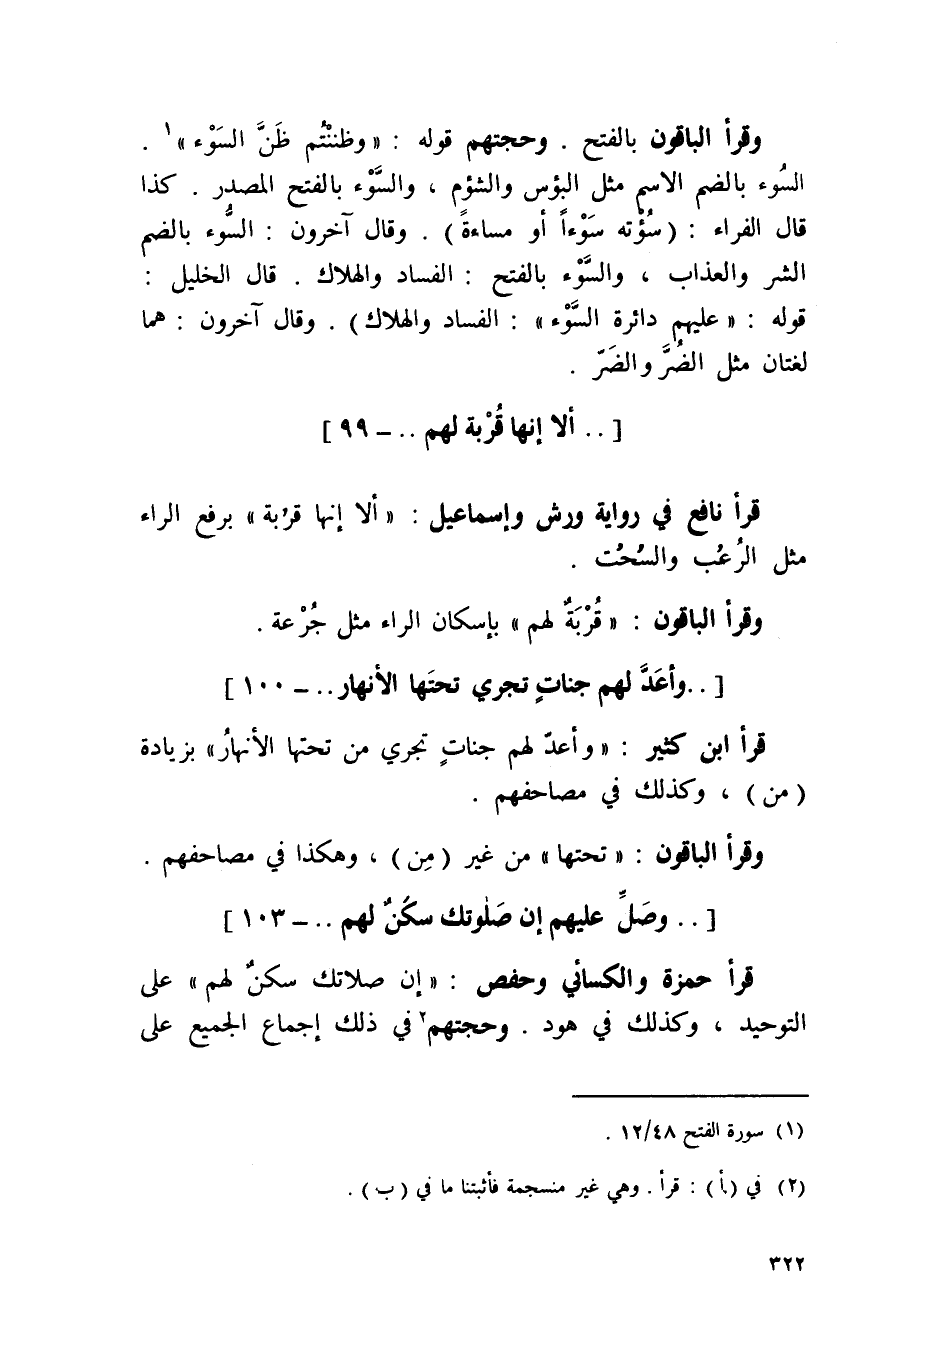 وقرأ الباقون بالفتح . وحجتهم قوله : « وظننْتُم ظَنَّ السَوْء »١ .
السُوء بالضم الاسم مثل البؤس والشؤم ، والسَّوْء بالفتح المصدر . كذا
قال الفراء : ( سُؤْته سَوْءاً أو مساءةً ) . وقال آخرون : السُّوء بالضم
الشر والعذاب ، والسَّوْء بالفتح : الفساد والهلاك . قال الخليل :
قوله : « عليهم دائرة السَّوْء » : الفساد والهلاك ) . وقال آخرون : هما
لغتان مثل الضُرَّ والضَرّ .
[ .. ألا إنها قُرْبة لهم .. – ٩٩ ]
قرأ نافع في رواية ورش وإسماعيل : « ألا إنها قرُبة » برفع الراء
مثل الرُعُب والسُحُت .
وقرأ الباقون : « قُرْبَةٌ لهم » بإسكان الراء مثل جُرْعة .
[ ..وأعَدَّ لهم جناتٍ تجري تحتَها الأنهار .. – ١٠٠ ]
قرأ ابن كثير : « وأعدّ لهم جناتٍ تجري من تحتها الأنهارُ » بزيادة
( من ) ، وكذلك في مصاحفهم .
وقرأ الباقون : « تحتها » من غير ( مِن ) ، وهكذا في مصاحفهم .
[ .. وصَلِّ عليهم إن صَلٰوتك سكَنٌ لهم .. – ١٠٣ ]
قرأ حمزة والكسائي وحفص : « إن صلاتك سكنٌ لهم » على
التوحيد ، وكذلك في هود . وحجتهم٢ في ذلك إجماع الجميع على
(١) سورة الفتح ١٢/٤٨ .
(٢) في (أ) : قرأ . وهي غير منسجمة فأثبتنا ما في ( ب ) .
٣٢٢